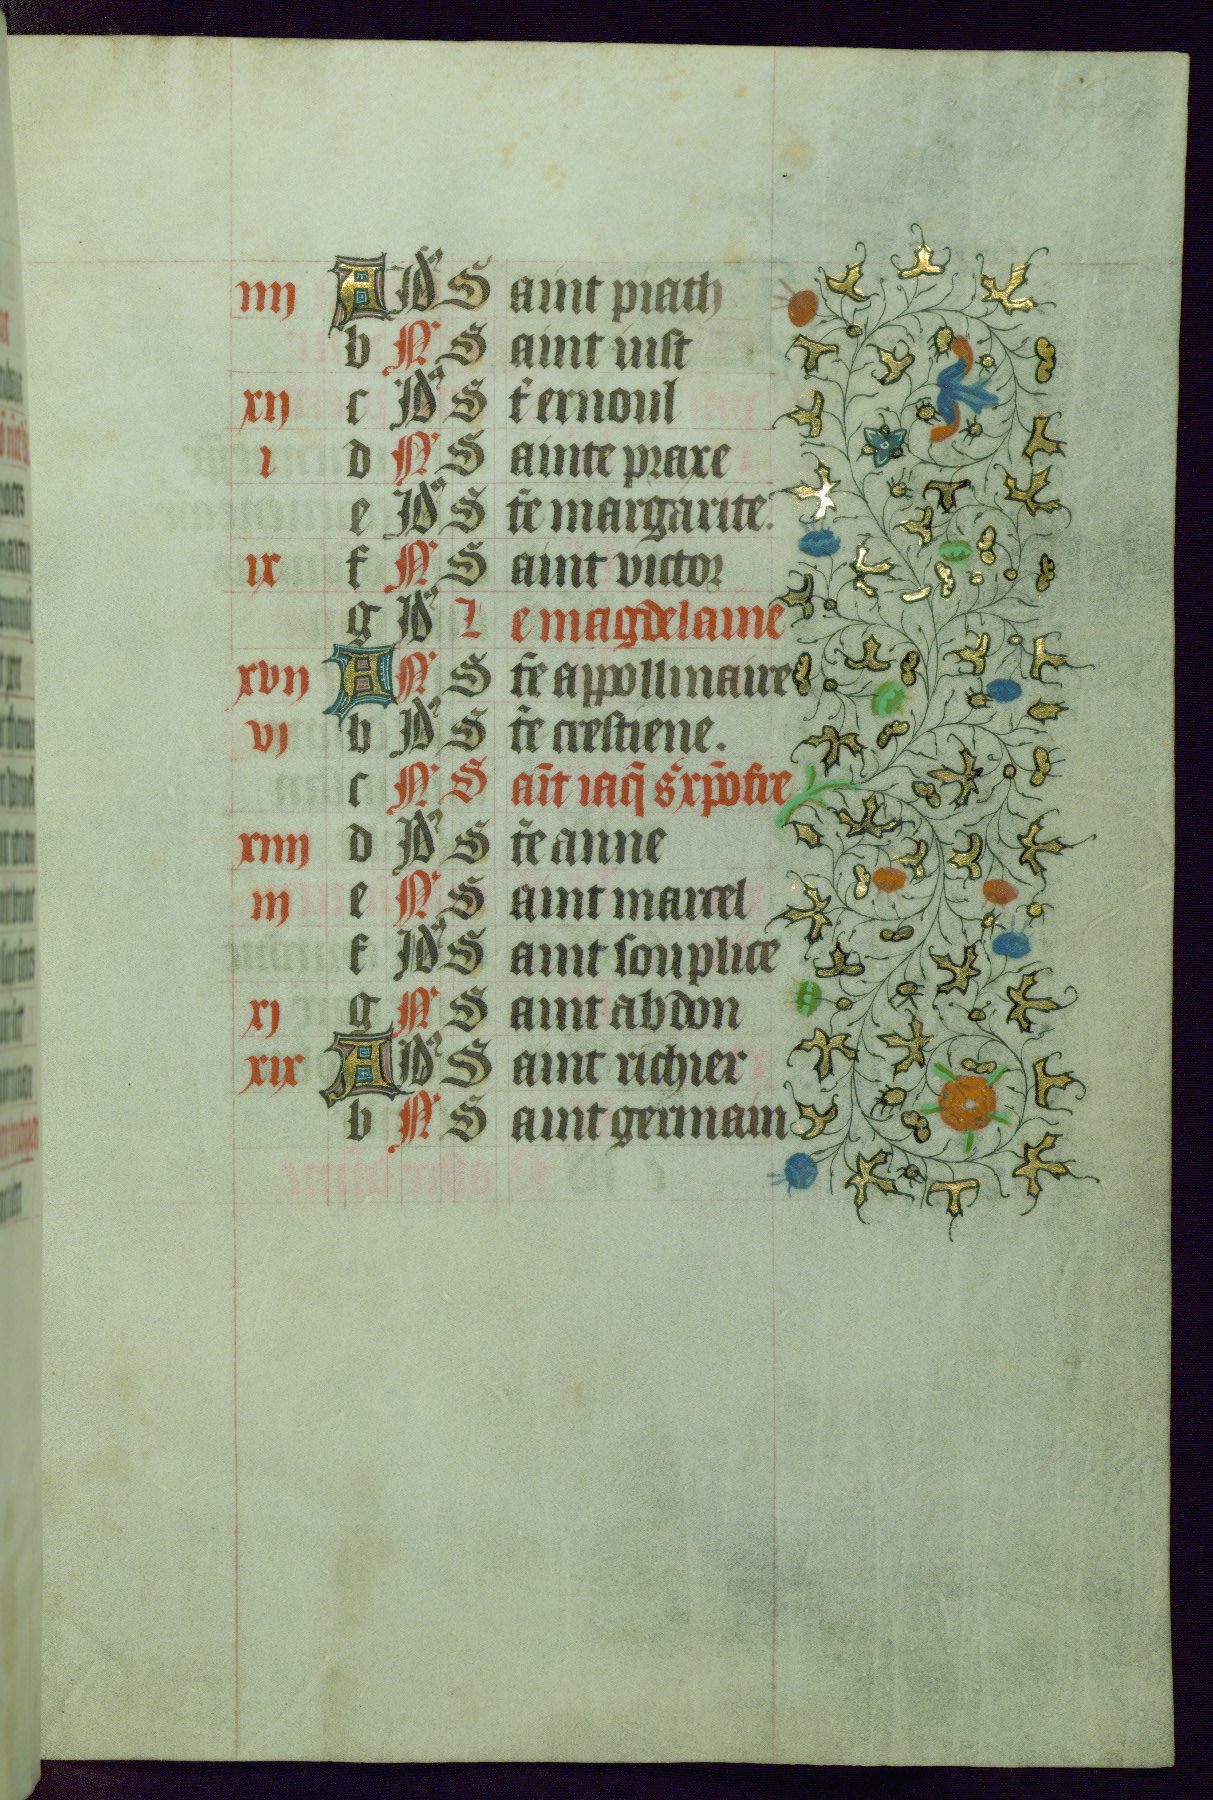 iiij A Id' S aint piath
b N' S aint iust
xij c Id' S t ernoul
i d N' S ainte praxe
e Id' S te margarite.
ix f N' S aint victor
g Id' L e magdelaine
xvij A N' S te appollinaire
vj b Id' S te crestiene.
c N' S aīt iaq̄ s̄ xp̄ofre
xiiij d Id' S te anne
iij e N' S aint marcel
f Id' S aint souplice
xj g N' S aint abdon
xix A Id' S aint richier
b N' S aint germain